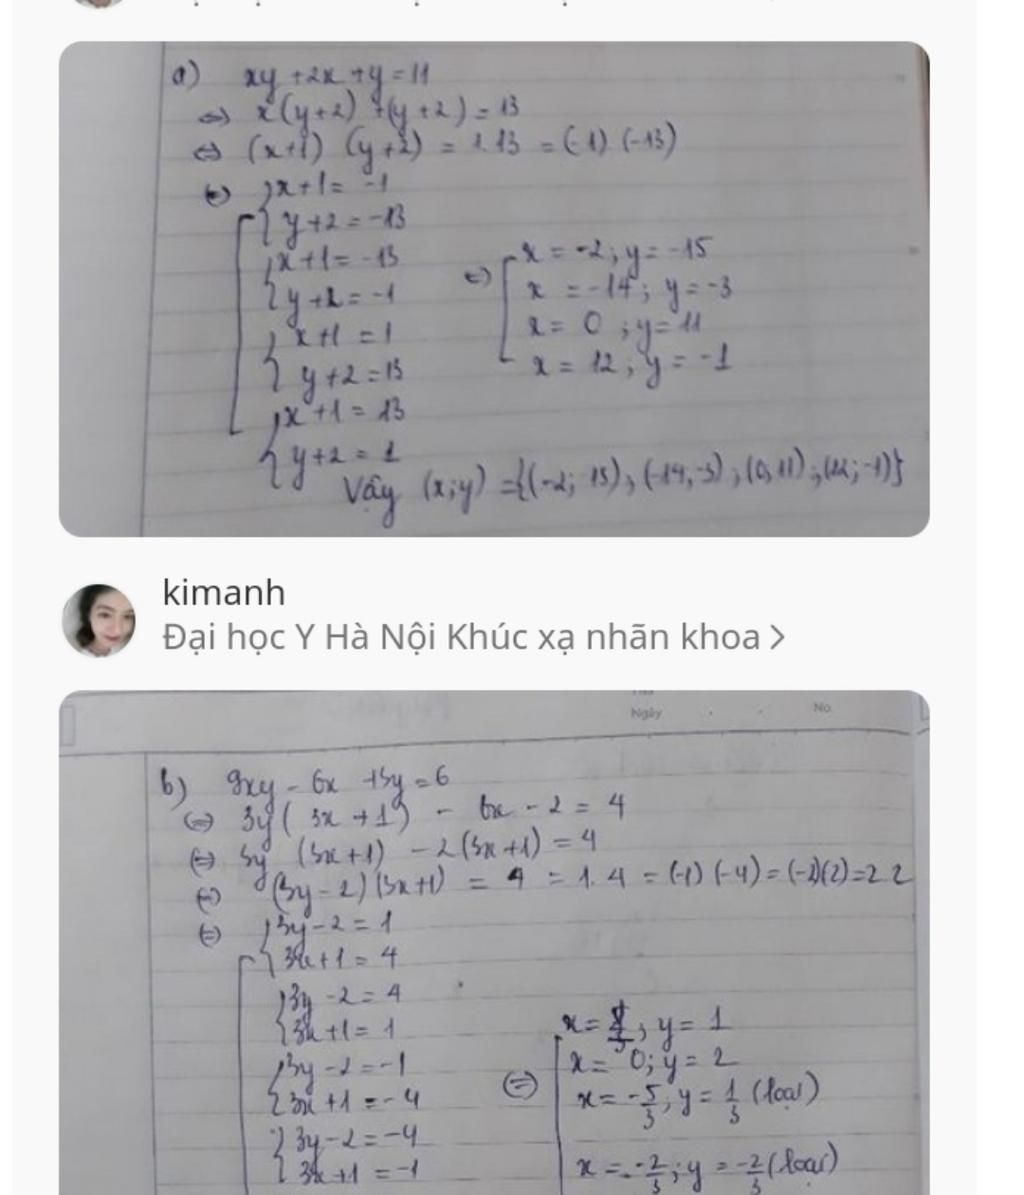 a) xy + 2x + y = 11
⇔ x(y+2) + (y+2) = 13
⇔ (x+1) (y+2) = 1.13 = (-1) (-13)
⇔ { x+1 = -1
y+2 = -13
{ x+1 = -13
y+2 = -1
{ x+1 = 1
y+2 = 13
{ x+1 = 13
y+2 = 1
⇔ [ x = -2; y = -15
x = -14; y = -3
x = 0; y = 11
x = 12; y = -1
Vậy (x;y) = {(-2; -15), (-14, -3), (0, 11), (12; -1)}
kimanh
Đại học Y Hà Nội Khúc xạ nhãn khoa >
Ngày
No.
b) 9xy - 6x + 3y = 6
⇔ 3y( 3x + 1 ) - 6x - 2 = 4
⇔ 3y (3x+1) - 2(3x+1) = 4
⇔ (3y-2)(3x+1) = 4 = 1.4 = (-1) (-4) = (-2)(2) = 2.2
⇔ { 3y-2 = 1
3x+1 = 4
{ 3y-2 = 4
3x+1 = 1
{ 3y-2 = -1
3x+1 = -4
{ 3y-2 = -4
3x+1 = -1
x = ; y = 1
⇔ [ x = 0; y = 2
x = -5/3; y = 1/3 (loại)
x = -2/3; y = -2/3 (loại)